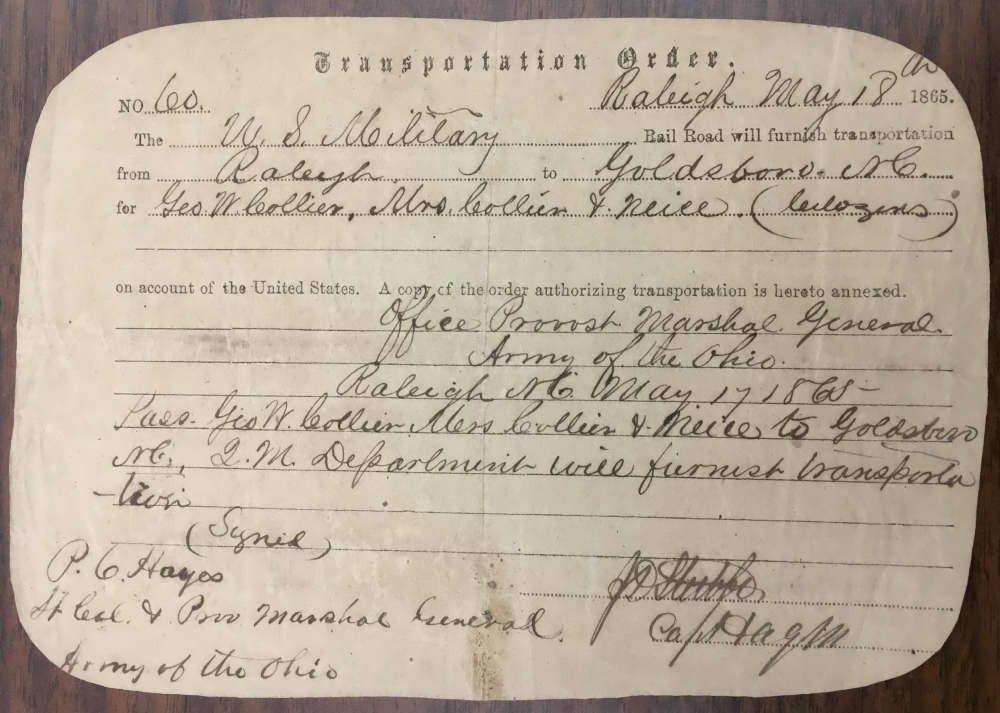 Transportation Order.
Raleigh May 18th 1865.
NO 60.
The U. S. Military Rail Road will furnish transportation
from Raleigh. to Goldsboro. NC.
for Geo. W. Collier, Mrs. Collier & Neice. (Citozens)
on account of the United States. A copy of the order authorizing transportation is hereto annexed.
Office Provost Marshal General.
Army of the Ohio.
Raleigh NC. May 17 1865
Pass. Geo W. Collier Mrs Collier & Neice to Goldsboro
NC., Q. M. Department will furnish transporta
-tion
(Signed)
P. C. Hayes
Lt Col. & Prov Marshal General.
Army of the Ohio
Capt & AQM